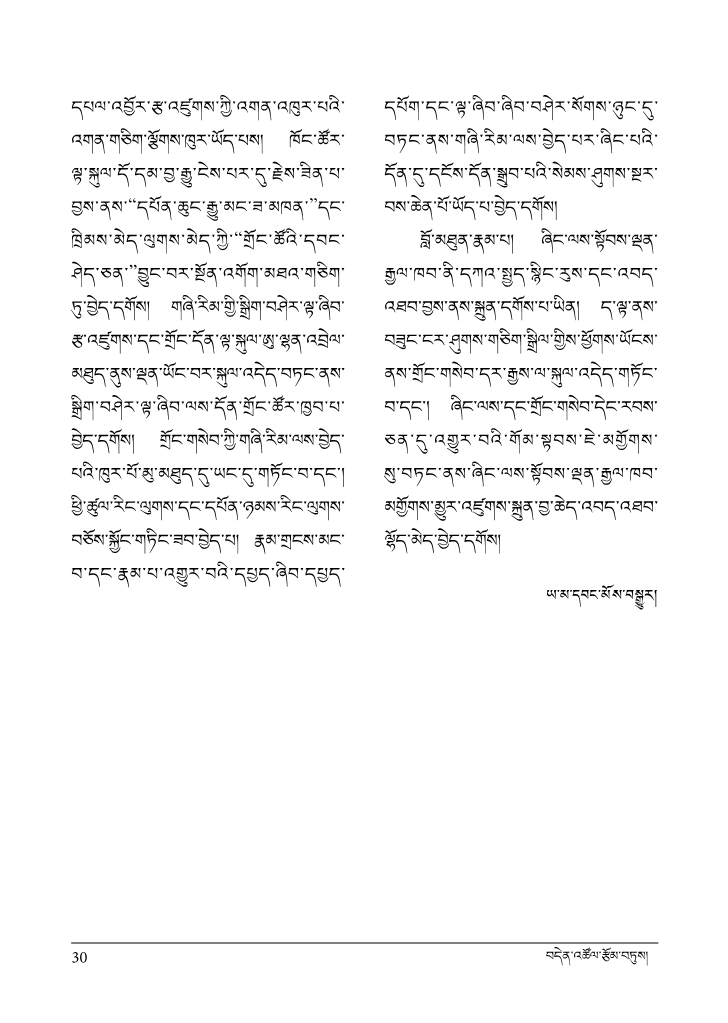 དཔལ་འབྱོར་རྩ་འཛུགས་ཀྱི་འགན་འཁུར་པའི་
འགན་གཅིག་ལྕོགས་ཁུར་ཡོད་པས། ཁོང་ཚོར་
ལྟ་སྐུལ་དོ་དམ་བྱ་རྒྱུ་ངེས་པར་དུ་རྗེས་ཟིན་པ་
བྱས་ནས་“དཔོན་ཆུང་རྒྱུ་མང་ཟ་མཁན་”དང་
ཁྲིམས་མེད་ལུགས་མེད་ཀྱི་“གྲོང་ཚོའི་དབང་
ཤེད་ཅན་”བྱུང་བར་སྔོན་འགོག་མཐའ་གཅིག་
ཏུ་བྱེད་དགོས། གཞི་རིམ་གྱི་སྒྲིག་བཤེར་ལྟ་ཞིབ་
རྩ་འཛུགས་དང་གྲོང་དོན་ལྟ་སྐུལ་ཨུ་ལྷན་འབྲེལ་
མཐུད་ནུས་ལྡན་ཡོང་བར་སྐུལ་འདེད་བཏང་ནས་
སྒྲིག་བཤེར་ལྟ་ཞིབ་ལས་དོན་གྲོང་ཚོར་ཁྱབ་པ་
བྱེད་དགོས། གྲོང་གསེབ་ཀྱི་གཞི་རིམ་ལས་བྱེད་
པའི་ཁུར་པོ་མུ་མཐུད་དུ་ཡང་དུ་གཏོང་བ་དང་།
ཕྱི་ཚུལ་རིང་ལུགས་དང་དཔོན་ཉམས་རིང་ལུགས་
བཅོས་སྐྱོང་གཏིང་ཟབ་བྱེད་པ། རྣམ་གྲངས་མང་
བ་དང་རྣམ་པ་འགྱུར་བའི་དཔྱད་ཞིབ་དཔྱད་
དཔོག་དང་ལྟ་ཞིབ་ཞིབ་བཤེར་སོགས་ཉུང་དུ་
བཏང་ནས་གཞི་རིམ་ལས་བྱེད་པར་ཞིང་པའི་
དོན་དུ་དངོས་དོན་སྒྲུབ་པའི་སེམས་ཤུགས་སྔར་
བས་ཆེན་པོ་ཡོད་པ་བྱེད་དགོས།
བློ་མཐུན་རྣམ་པ། ཞིང་ལས་སྟོབས་ལྡན་
རྒྱལ་ཁབ་ནི་དཀའ་སྤྱད་སྙིང་རུས་དང་འབད་
འཐབ་བྱས་ནས་སྐྲུན་དགོས་པ་ཡིན། ད་ལྟ་ནས་
བཟུང་ངར་ཤུགས་གཅིག་སྒྲིལ་གྱིས་ཕྱོགས་ཡོངས་
ནས་གྲོང་གསེབ་དར་རྒྱས་ལ་སྐུལ་འདེད་གཏོང་
བ་དང་། ཞིང་ལས་དང་གྲོང་གསེབ་དེང་རབས་
ཅན་དུ་འགྱུར་བའི་གོམ་སྟབས་ཇེ་མགྱོགས་
སུ་བཏང་ནས་ཞིང་ལས་སྟོབས་ལྡན་རྒྱལ་ཁབ་
མགྱོགས་མྱུར་འཛུགས་སྐྲུན་བྱ་ཆེད་འབད་འཐབ་
ལྷོད་མེད་བྱེད་དགོས།
ཡ་མ་དབང་མོས་བསྒྱུར།
30
བདེན་འཚོལ་རྩོམ་བཏུས།